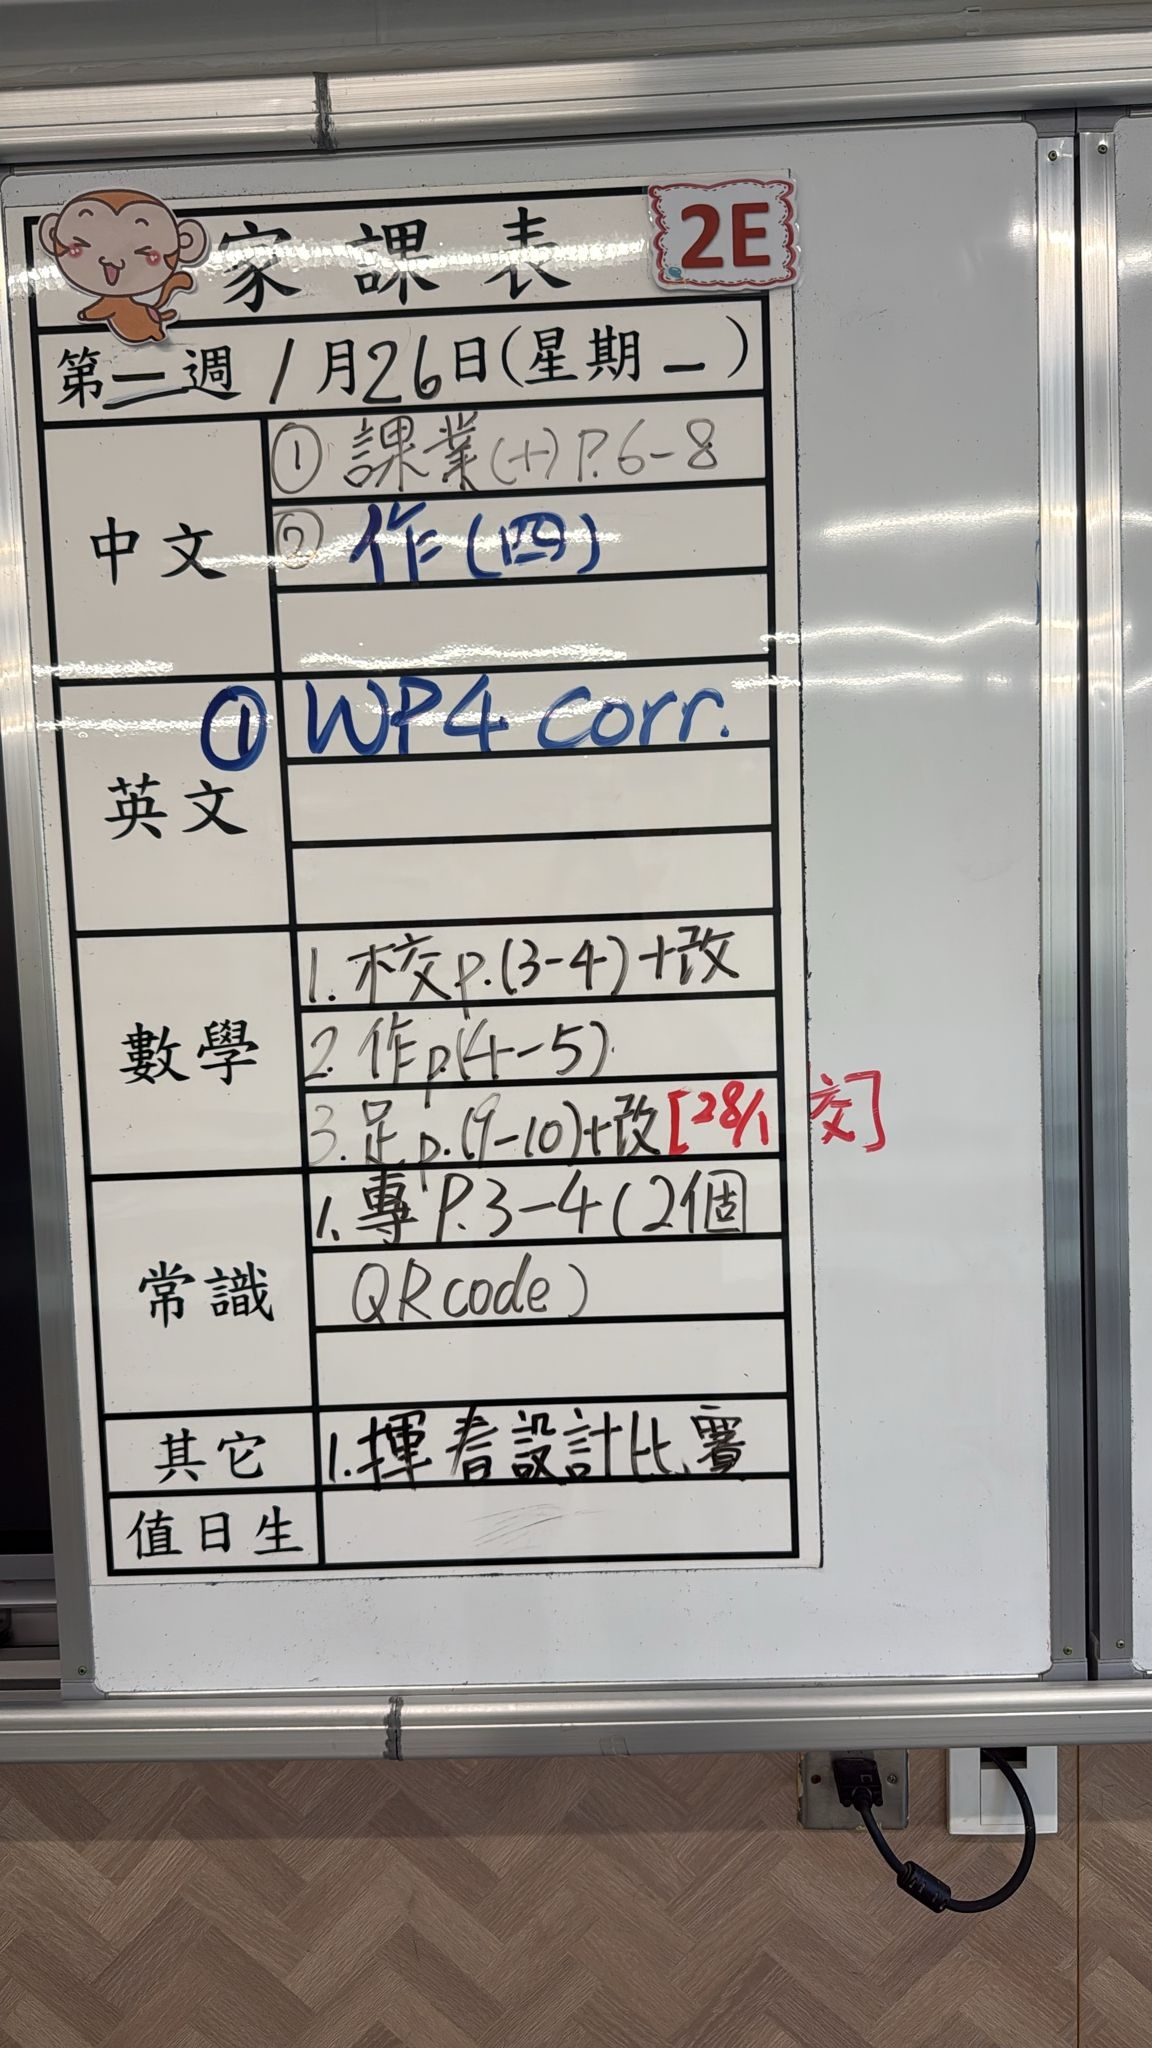 家課表
2E
第一週 1月26日(星期一)
中文
① 課業(十)P.6-8
② 作(四)
英文
① WP4 Corr.
數學
1. 校p.(3-4)+改
2. 作p(4-5)
3. 足p.(9-10)+改[28/1 交]
常識
1. 專P.3-4(2個
QR code)
其它
1. 揮春設計比賽
值日生